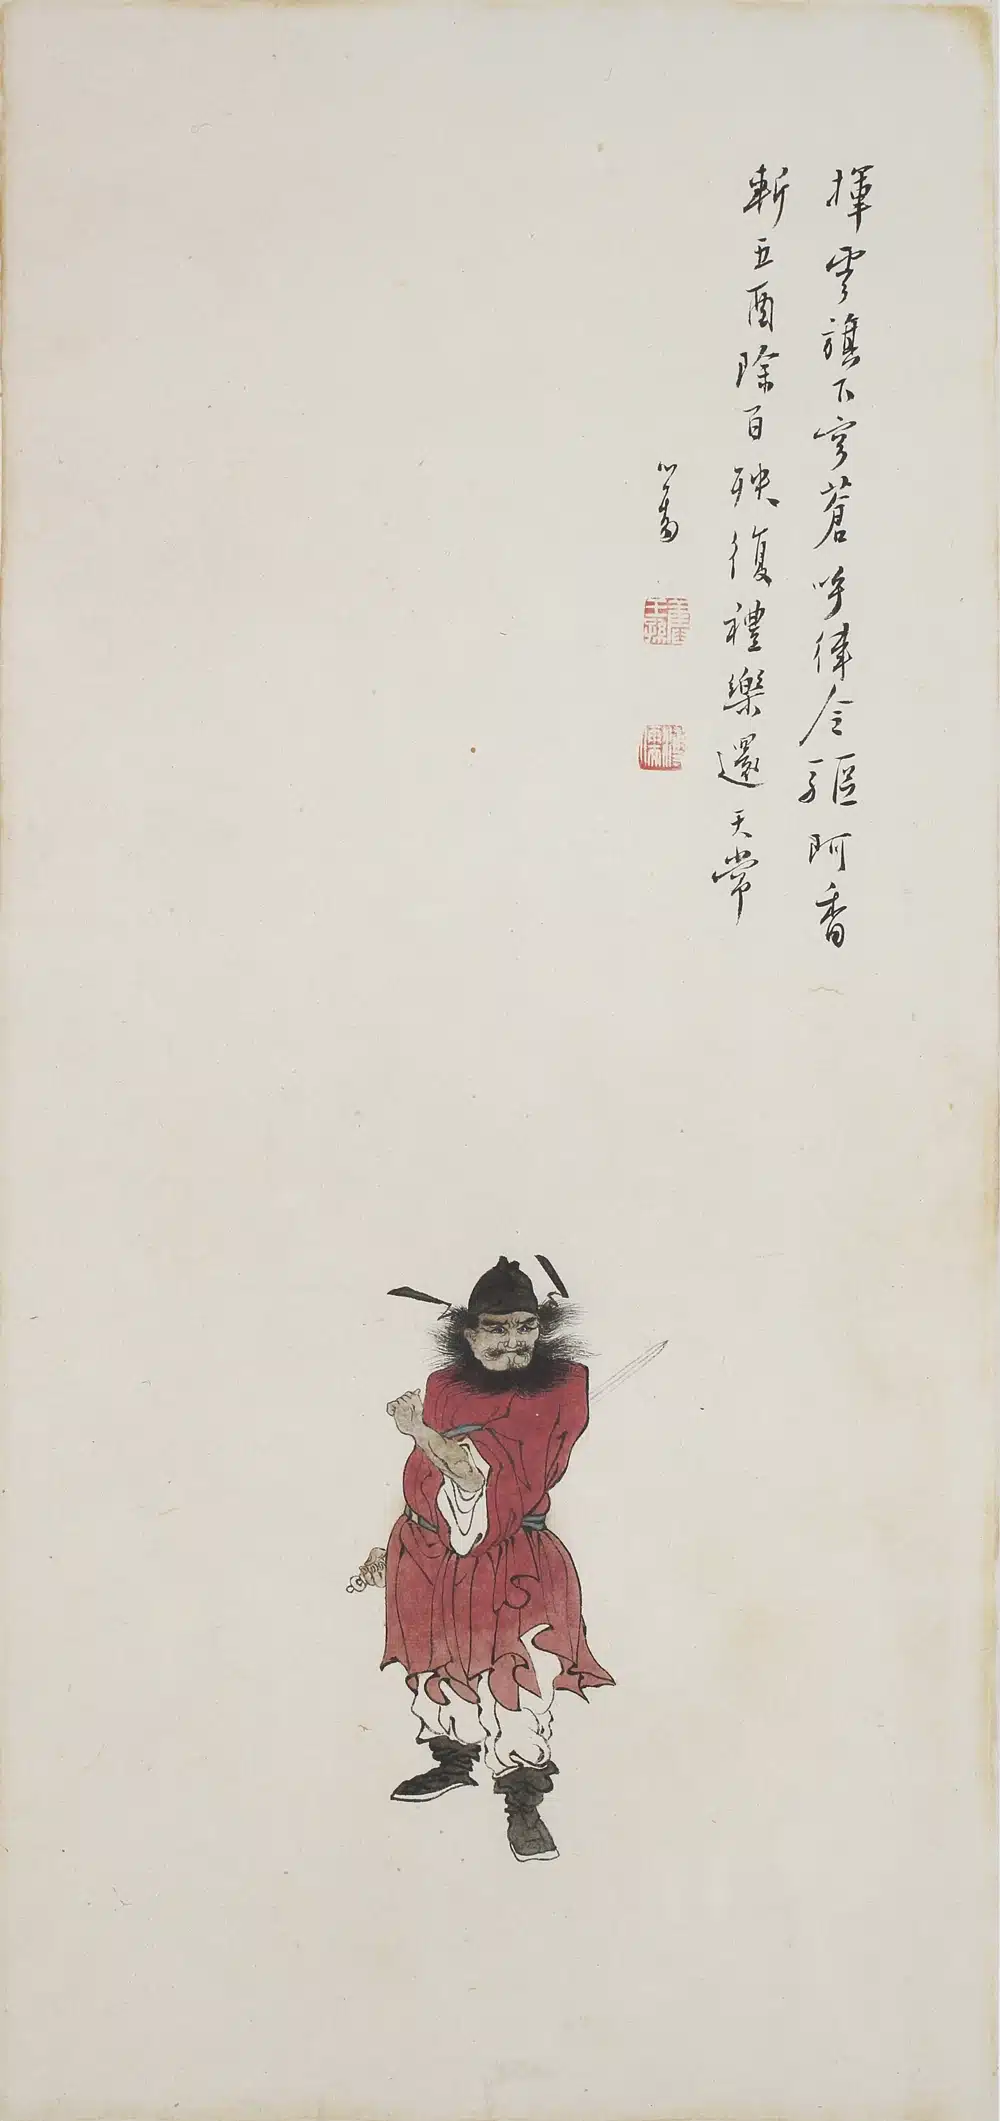 揮雲旗下穹蒼呼律令驅阿香
斬五酉除百殃復禮樂還天常
心畬
舊王孫
溥儒